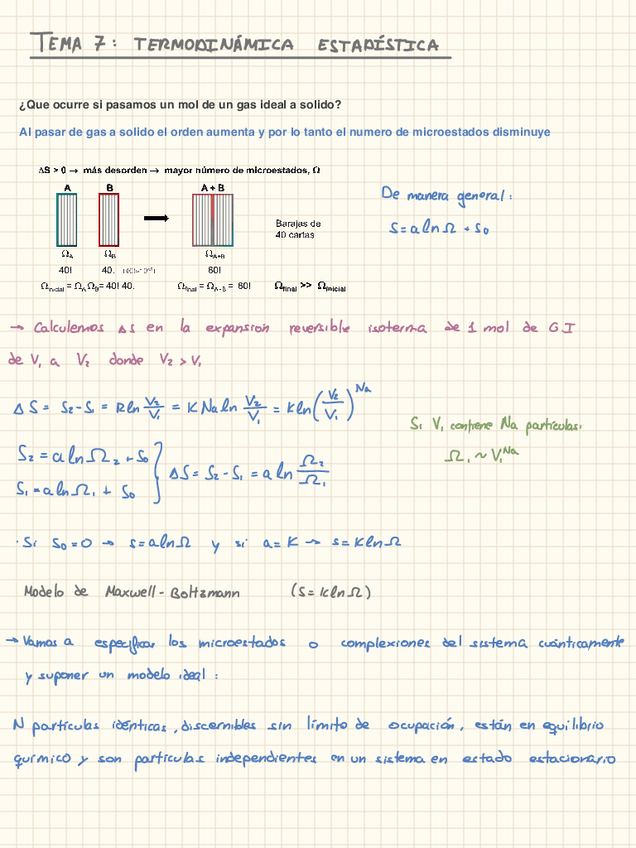 TEMA 7: TERMODINÁMICA ESTADÍSTICA
¿Que ocurre si pasamos un mol de un gas ideal a solido?
Al pasar de gas a solido el orden aumenta y por lo tanto el numero de microestados disminuye
ΔS > 0 → más desorden → mayor número de microestados, Ω
A B A + B
Barajas de
40 cartas
Ω_A Ω_B Ω_A+B
40! 40. 60!
Ω_inicial = Ω_A Ω_B = 40! 40. Ω_final = Ω_A+B = 60! Ω_final >> Ω_inicial
De manera general:
S = a ln Ω + S₀
→ Calculemos ΔS en la expansion reversible isoterma de 1 mol de G I
de V₁ a V₂ donde V₂ > V₁
ΔS = S₂ - S₁ = R ln V₂/V₁ = K Na ln V₂/V₁ = K ln (V₂/V₁)^Na
Si V₁ contiene Na partículas:
Ω₁ ~ V₁^Na
S₂ = a ln Ω₂ + S₀
S₁ = a ln Ω₁ + S₀
} ΔS = S₂ - S₁ = a ln Ω₂/Ω₁
· Si S₀ = 0 → S = a ln Ω y si a = K → S = K ln Ω
Modelo de Maxwell - Boltzmann (S = K ln Ω)
→ Vamos a especificar los microestados o complexiones del sistema cuánticamente
y suponer un modelo ideal:
N partículas idénticas, discernibles sin límite de ocupación, están en equilibrio
químico y son partículas independientes en un sistema en estado estacionario